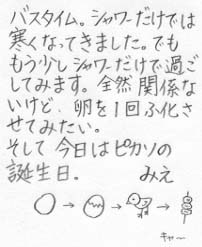 バスタイム。シャワーだけでは
寒くなってきました。でも
もう少しシャワーだけで過ご
してみます。全然関係な
いけど、卵を1回ふ化さ
せてみたい。
そして今日はピカソの
誕生日。 みえ
→ → →
キャー